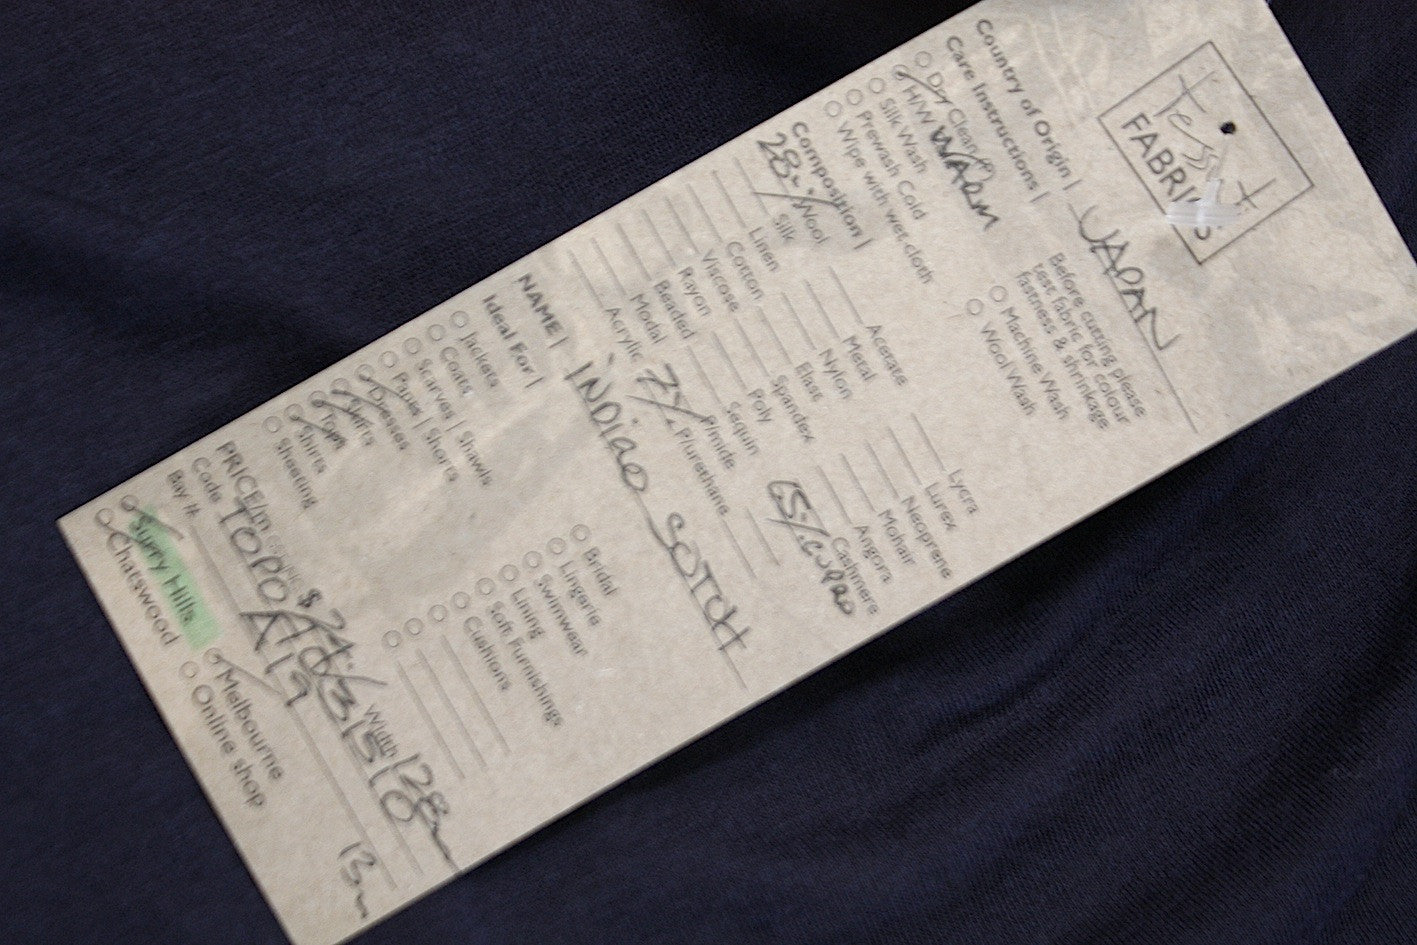 tessuti
FABRICS
Country of Origin | JAPAN
Care Instructions |
Before cutting please
test fabric for colour
fastness & shrinkage
Dry Clean
H/W WARM
Silk Wash
Prewash Cold
Wipe with wet cloth
Machine Wash
Wool Wash
Composition |
28% Wool
Silk
Linen
Cotton
Viscose
Rayon
Beaded
Modal
Acrylic
Acetate
Metal
Nylon
Elast
Spandex
Poly
Sequin
P/mide
7% P/urethane
Lycra
Lurex
Neoprene
Mohair
Angora
Cashmere
65% CUPRO
NAME | INDIGO SOTCH
Ideal For |
Jackets
Coats
Scarves | Shawls
Pants | Shorts
Dresses
Skirts
Tops
Shirts
Sheeting
Bridal
Lingerie
Swimwear
Lining
Soft Furnishings
Cushions
PRICE/m $ Width 128cm
Code TOPO
Bay # A19 13m
Surry Hills
Chatswood
Melbourne
Online shop